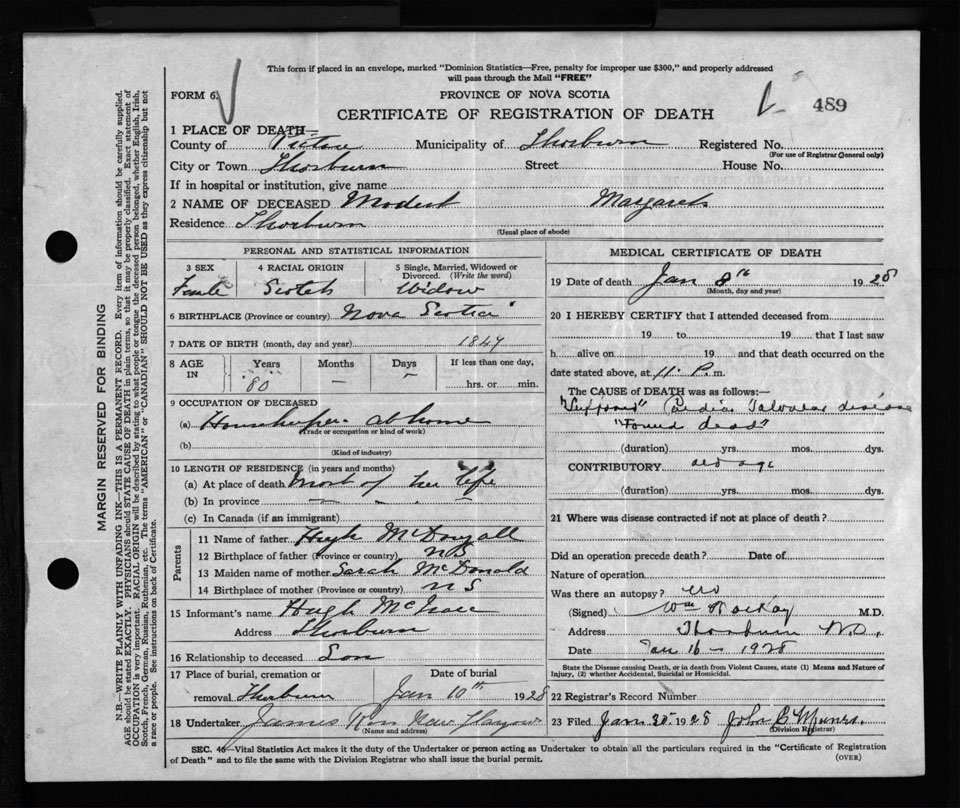 This form if placed in an envelope, marked "Dominion Statistics—Free, penalty for improper use $300," and properly addressed
will pass through the Mail "FREE"
FORM 6.
PROVINCE OF NOVA SCOTIA
489
CERTIFICATE OF REGISTRATION OF DEATH
1 PLACE OF DEATH—
County of Pictou Municipality of Thorburn Registered No.
(For use of Registrar General only)
City or Town Thorburn Street House No.
If in hospital or institution, give name
2 NAME OF DECEASED Margaret
Residence Thorburn
(Usual place of abode)
PERSONAL AND STATISTICAL INFORMATION
3 SEX 4 RACIAL ORIGIN 5 Single, Married, Widowed or Divorced. (Write the word)
Female Scotch Widow
6 BIRTHPLACE (Province or country) Nova Scotia
7 DATE OF BIRTH (month, day and year) 1847
8 AGE IN Years Months Days If less than one day,
80 — — hrs. or min.
9 OCCUPATION OF DECEASED
(a) Housekeeper at home
(Trade or occupation or kind of work)
(b)
(Kind of industry)
10 LENGTH OF RESIDENCE (in years and months)
(a) At place of death Most of her life
(b) In province
(c) In Canada (if an immigrant)
Parents
11 Name of father Hugh McDougall
12 Birthplace of father (Province or country) N S
13 Maiden name of mother Sarah McDonald
14 Birthplace of mother (Province or country) N S
15 Informant's name Hugh
Address Thorburn
16 Relationship to deceased Son
17 Place of burial, cremation or removal Thorburn
Date of burial Jan 10th 1928
18 Undertaker James Ross New Glasgow
(Name and address)
MEDICAL CERTIFICATE OF DEATH
19 Date of death Jan 8th 1928
(Month, day and year)
20 I HEREBY CERTIFY that I attended deceased from
19 to 19 that I last saw
h alive on 19 and that death occurred on the
date stated above, at 11 P.m.
The CAUSE OF DEATH was as follows:—
Cardiac Valvular disease
"Found dead"
(duration) yrs. mos. dys.
CONTRIBUTORY old age
(duration) yrs. mos. dys.
21 Where was disease contracted if not at place of death?
Did an operation precede death? Date of
Nature of operation
Was there an autopsy? no
(Signed) Wm M.D.
Address Thorburn N.S.
Date Jan 16 — 1928
State the Disease causing Death, or in death from Violent Causes, state (1) Means and Nature of
Injury, (2) whether Accidental, Suicidal or Homicidal.
22 Registrar's Record Number
23 Filed Jan 1928 John Munro.
(Division Registrar)
SEC. 46—Vital Statistics Act makes it the duty of the Undertaker or person acting as Undertaker to obtain all the particulars required in the "Certificate of Registration
of Death" and to file the same with the Division Registrar who shall issue the burial permit.
(OVER)
MARGIN RESERVED FOR BINDING
N.B.—WRITE PLAINLY WITH UNFADING INK—THIS IS A PERMANENT RECORD. Every item of information should be carefully supplied.
AGE should be stated EXACTLY. PHYSICIANS should STATE CAUSE OF DEATH in plain terms, so that it may be properly classified. Exact statement of
OCCUPATION is very important. RACIAL ORIGIN will be described by stating to what people or tongue the deceased person belonged, whether English, Irish,
Scotch, French, German, Russian, Ruthenian, etc. The terms "AMERICAN" or "CANADIAN" SHOULD NOT BE USED as they express citizenship but not
a race or people. See instructions on back of Certificate.